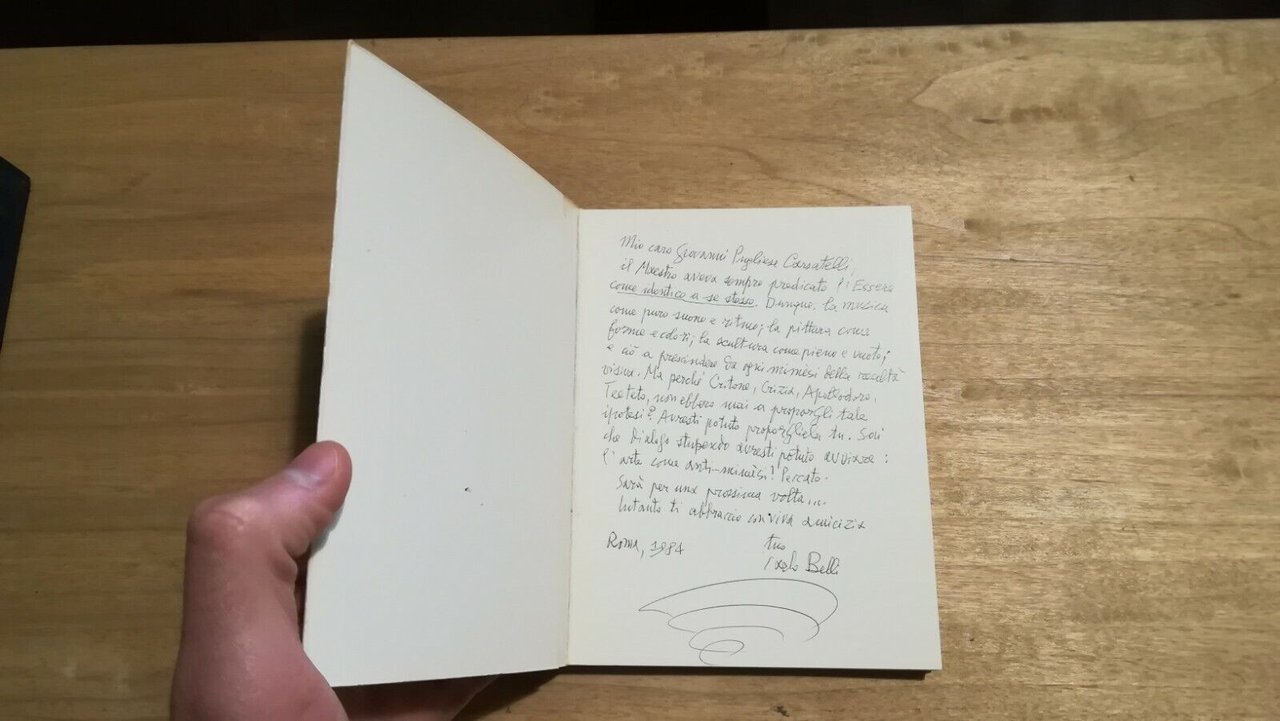 Mio caro Giovanni Pugliese Carratelli,
il Maestro aveva sempre predicato l'Essere
come identico a se stesso. Dunque, la musica
come puro suono e ritmo; la pittura come
forme e colori; la scultura come pieno e vuoto;
e ciò a prescindere da ogni mimesi della realtà
visiva. Ma perché Critone, Crizia, Apollodoro,
Teeteto, non ebbero mai a proporgli tale
ipotesi? Avresti potuto proporgliela tu. Sai
che dialogo stupendo avresti potuto avviare:
l'arte come anti-mimèsi! Peccato.
Sarà per una prossima volta....
Intanto ti abbraccio con viva amicizia
tuo
Roma, 1984
Carlo Belli